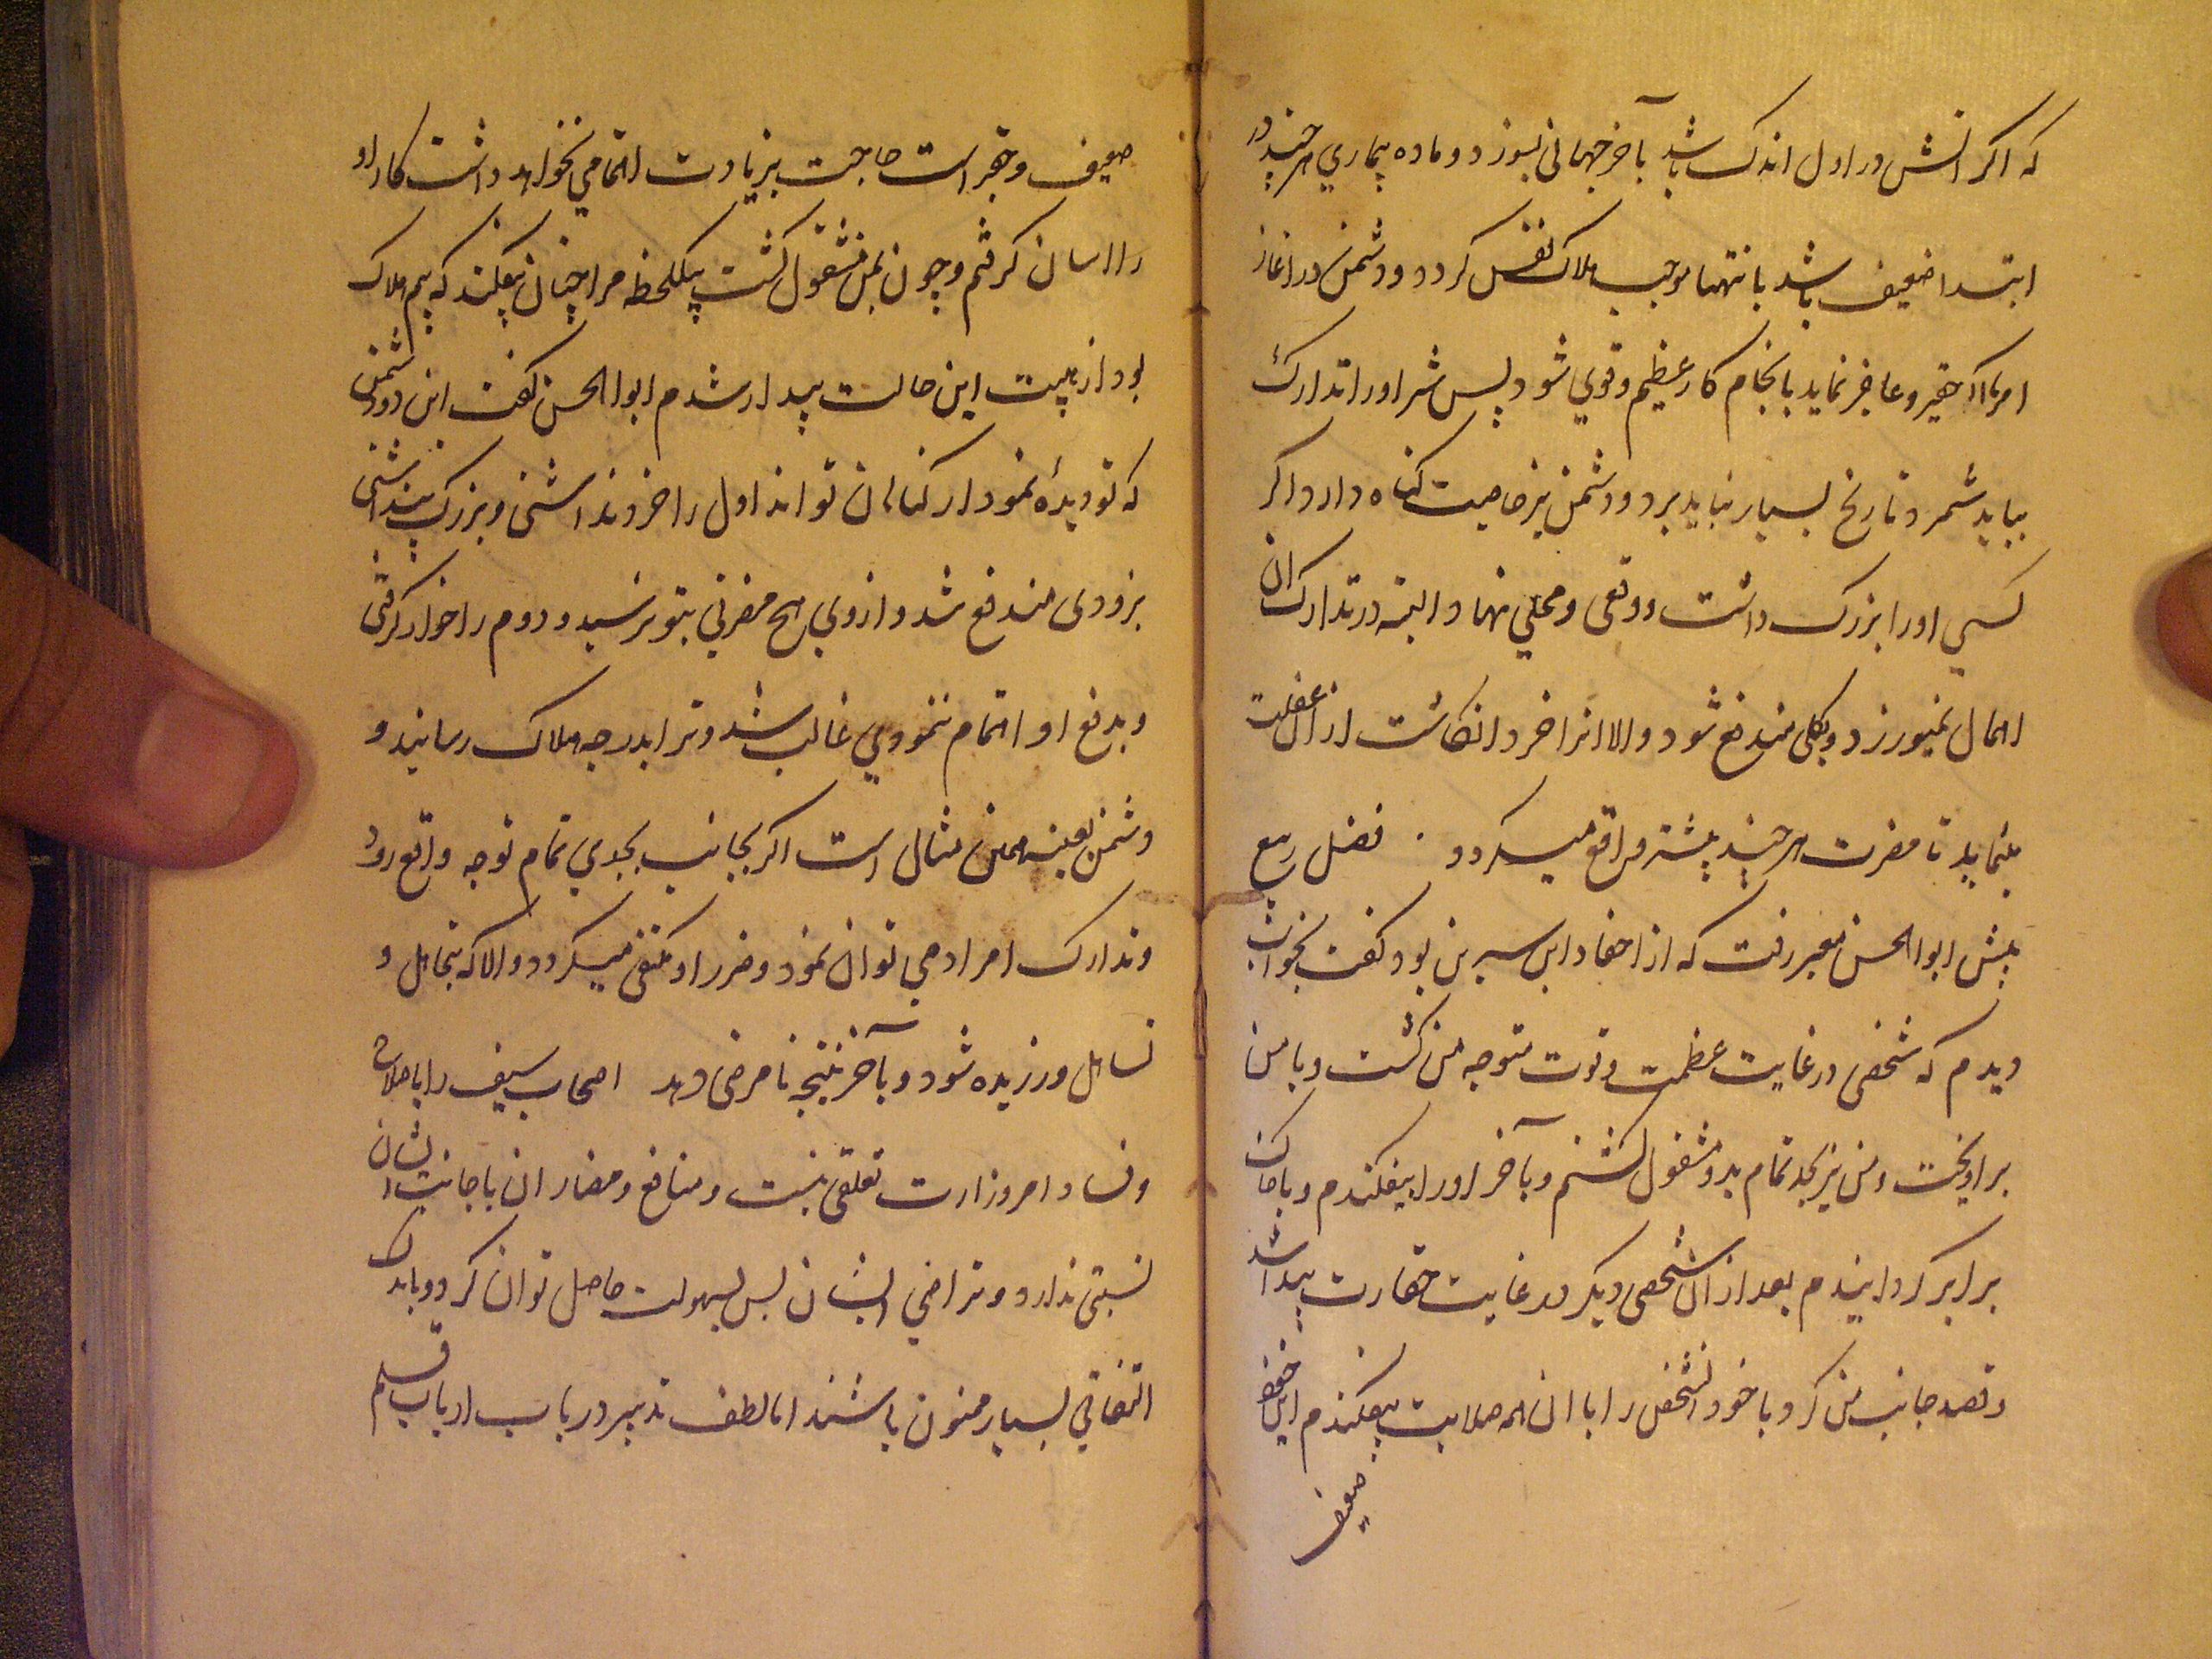 که اکر اتش در اول اندک باشد بآخر جهانی بسوزد و ماده بیماری هر چند در
ابتدا ضعیف باشد بانتها موجب هلاک نفس کردد و دشمن در اغاز
امر اکر حقیر و عاجز نماید بانجام کار عظیم و قوی شود پس شر او را تدارک
بباید شمرد تاریخ بسیار نباید برد و دشمن نیز خاصیت کناه دارد اکر
کسی او را بزرک داشت و وقعی و محلی نهاد البته در تدارک ان
اهمال نمیورزد و بکلی مندفع شود و الا انرا خرد انکاشت از ان غفلت
بنماید تا مضرت هر چند بیشتر واقع میکردد . فضل ربیع
پیش ابو الحسن معبر رفت که از احفاد ابن سیرین بود کفت بخواب
دیدم که شخصی در غایت عظمت و قوت متوجه من کشت و با من
براویخت و من نیز بجد تمام بدو مشغول کشتم و بآخر او را بیفکندم و با خاک
برابر کردانیدم بعد از ان شخصی دیکر در غایت حقارت پیدا شد
و قصد جانب من کرد با خود انشخص را با ان همه صلابت بیفکندم این شخص
ضعیف
ضعیف و حقیر است حاجت بزیادت اهتمامی نخواهد داشت کار او
را اسان کرفتم و چون بمن مشغول کشت بیکلحظه مرا چنان بیفکند که بیم هلاک
بود از هیبت این حالت بیدار شدم ابو الحسن کفت این دو دشمن
که تو دیدهٔ نمودار کناهان تو اند اول را خرد نداشتی و بزرک پنداشتی
بزودی مندفع شد و از وی هیچ مضرتی بتو نرسید و دوم را خوار کرفتی
و بدفع او اهتمام ننمودی غالب شد و ترا بدرجه هلاک رسانید و
دشمن بعینه همین مثال است اکر بجانب بجدی تمام توجه واقع رود
و تدارک امر او می توان نمود و ضرر او منتفی میکردد و الا که بتجاهل و
تساهل ورزیده شود و بآخر نتیجه نامرضی دهد اصحاب سیف را با صلاح
و فساد امر وزارت تعلقی نیست و منافع و مضار ان با جانب ایشان
نسبتی ندارد و تراضی ایشان بس بسهولت حاصل توان کرد و باندک
التفاتی بسیار ممنون باشند اما لطف تدبیر در باب ارباب قلم